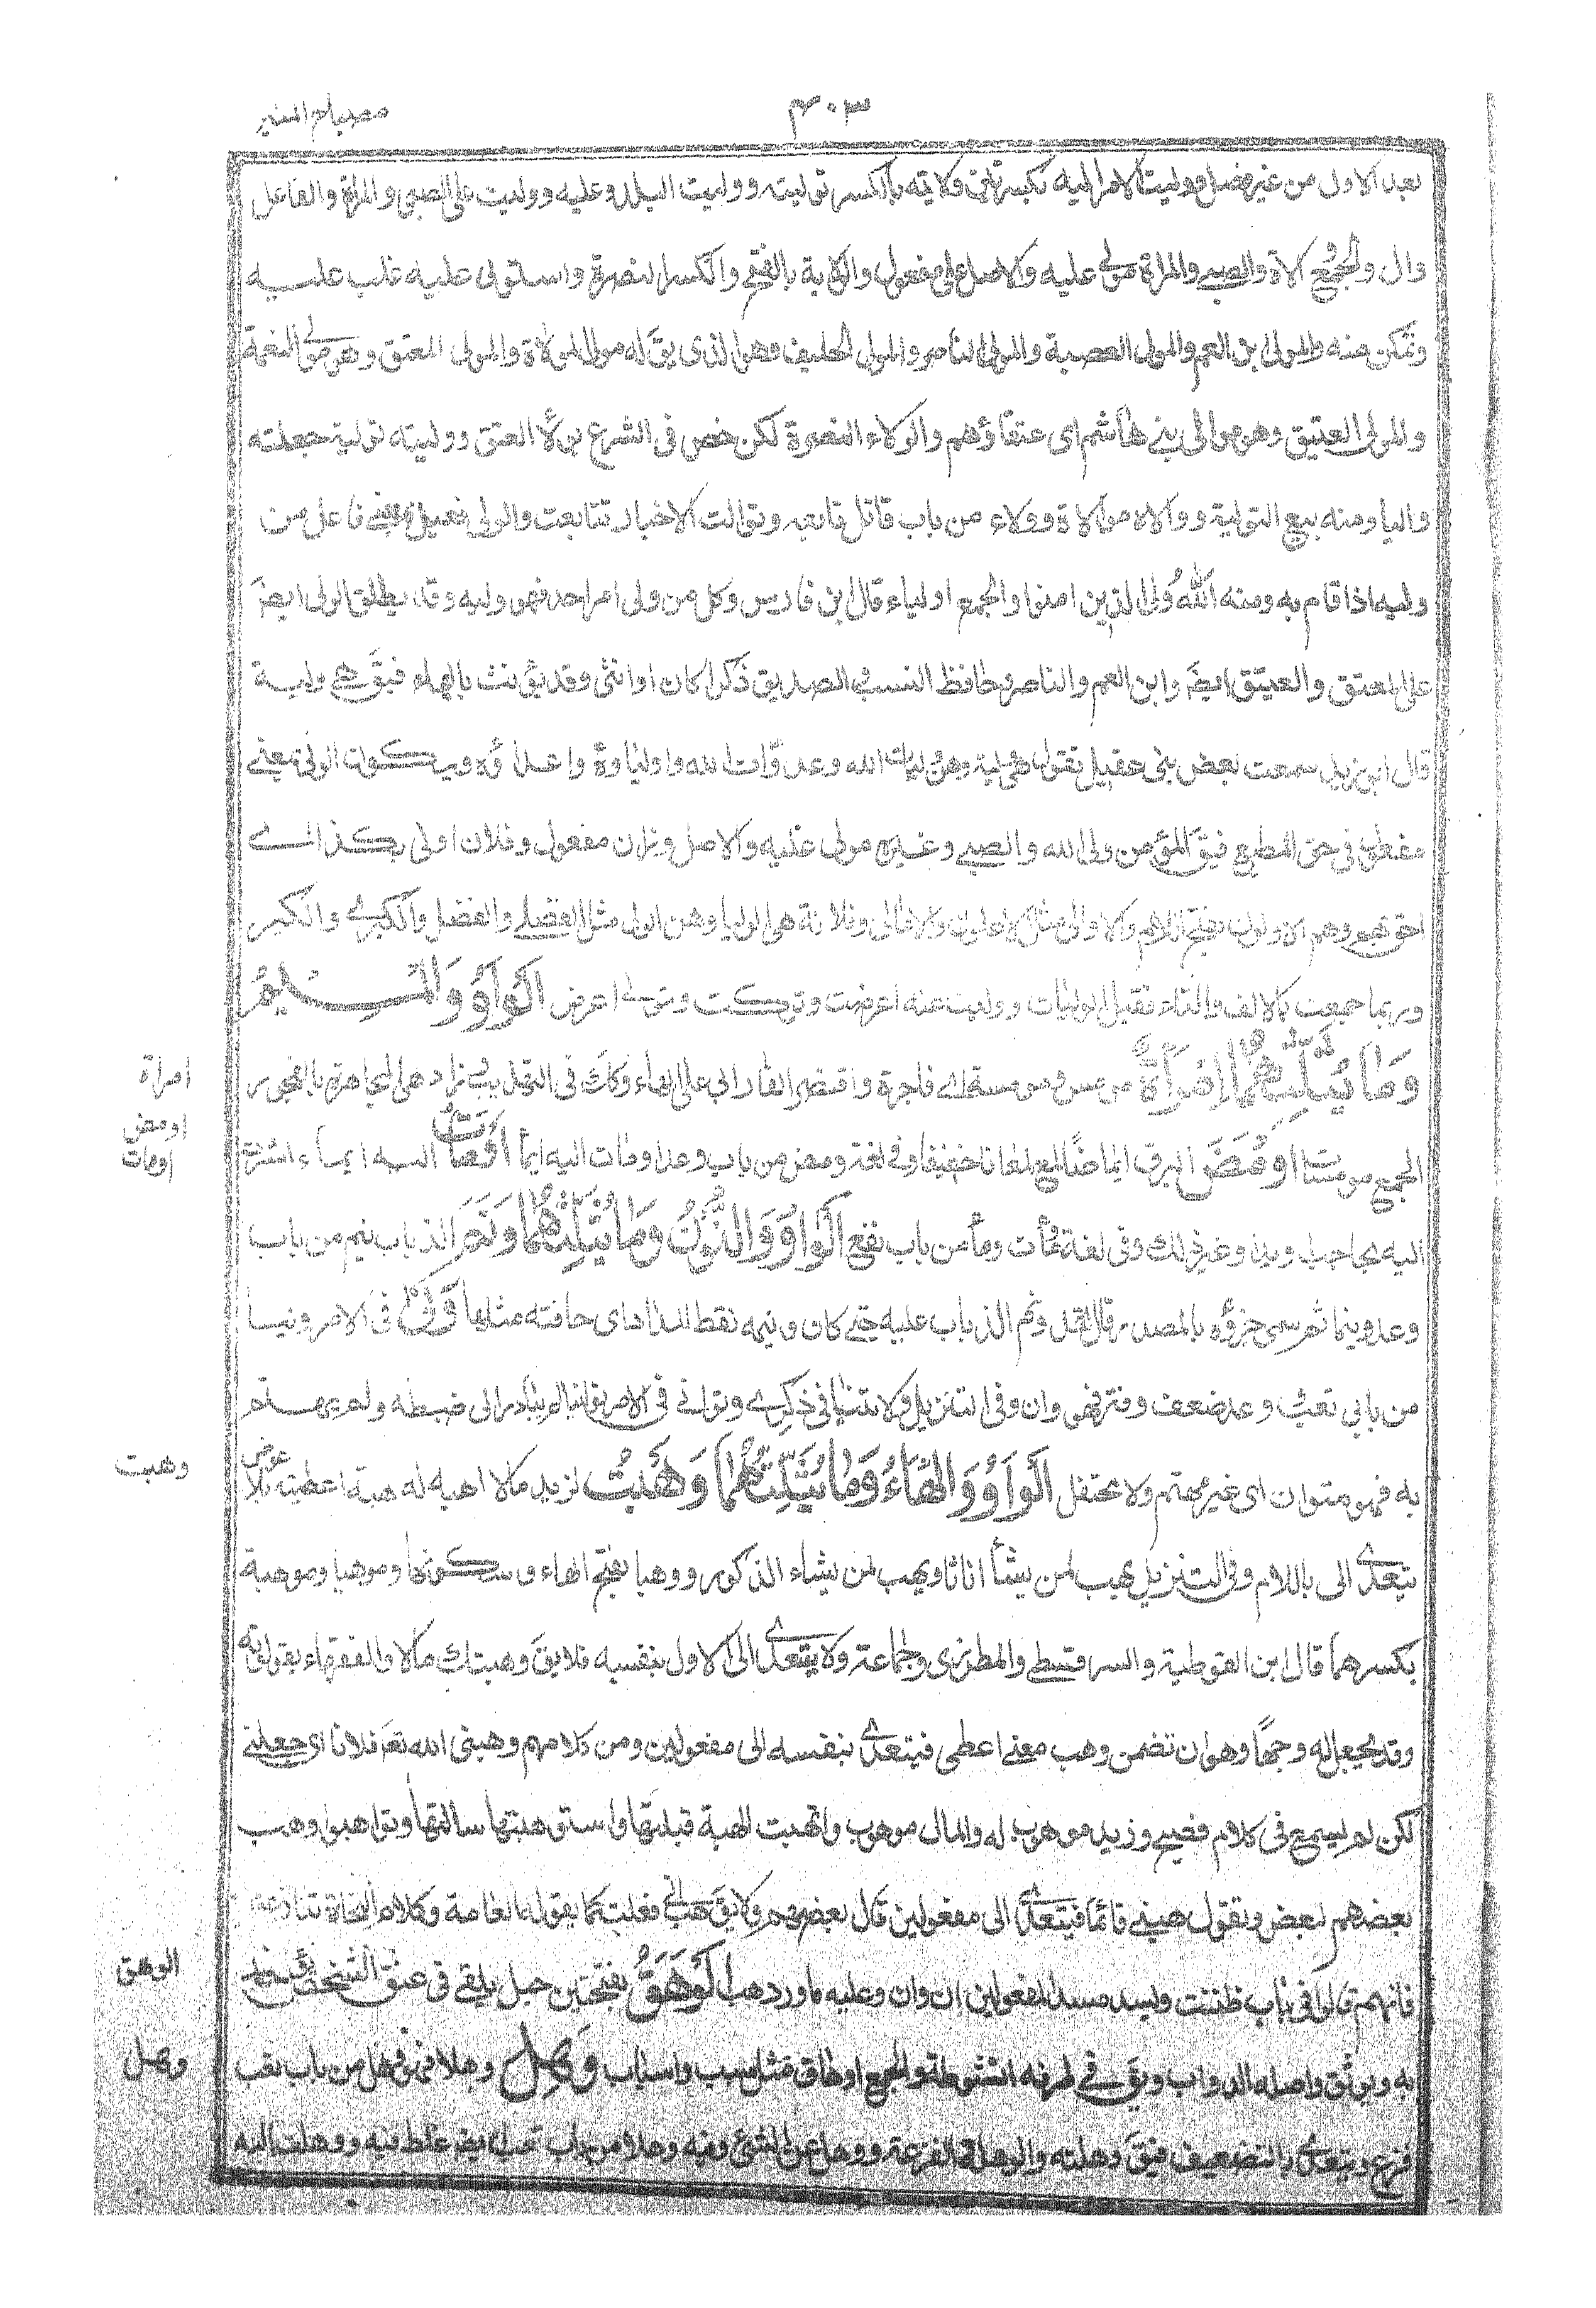 مصباح المنير
٤٠٣
بعد الاول من غير فصل ووليت الامر اليه بكسرتين ولاية بالكسر توليته ووليت البلد وعليه ووليت على الصبي والمراة والفاعل
وال والجمع ولاة والصبي والمراة مولى عليه والاصل على مفعول والولاية بالفتح والكسر النصرة واستولى عليه غلب عليه
وتمكن منه والمولى بن العم والمولى العصبة والمولى الناصر والمولى الحليف وهو الذى يق له مولى الموالاة والمولى المعتق وهو مولى النعمة
والمولى العتيق وهو موالى بني هاشم اى عتقاؤهم والولاء النصرة لكن خص فى الشرع بولاء العتق ووليته تولية جعلته
واليا ومنه بيع التولية ووالاه موالاة وولاء من باب قاتل تابعه وتوالت الاخبار تتابعت والولى فعيل بمعنى فاعل من
وليه اذا قام به ومنه الله ولى الذين امنوا والجمع اولياء قال ابن فارس وكل من ولى امر احد فهو وليه وقد يطلق الولى ايضَ
على المعتق والعتيق ايضَ وابن العم والناصر وحافظ النسب والصديق ذكرا كان او انثى وقد يؤنث بالهاء فيقَ هى ولية
قال ابن زيد سمعت بعض بنى عقيل تقول هى ولية وهن وليات الله وعدوات الله واولياوه واعداؤه ويكون الولى بمعنى
مفعول فى حق المطيع فيقَ المؤمن ولى الله والصبي وغيره مولى عليه والاصل وزان مفعول وفلان اولى بكذا اى
احق به وهم الاولون بفتح اللام والاوالى مثل الاعلون والاعالى وفلانة هى الوليا وهن الولى مثل الفضلى والفضل والكبرى والكبر
وربما جمعت بالالف والتاء فقيل الوليات ووليت عنه اعرضت وتركت وتولى اعرض الْوَاوُ وَالْمِيْمُ
وَمَا يُثَلِّثُهُمَا اِمْرَأَةٌ مومس ومومسة اى فاجرة واقتصر الفارابى على الهاء وكذلك فى التهذيب وزاد هى المجاهرة بالفجور
الجمع مومسات اَوْمَضَ البرق ايماضًا لمع لمعانا خفيفا وفى لغة ومض من باب وعد اومات اليه ايمأ اَوْمَأتُ اليه ايماء اشرت
اليه بحاجب او يد او غير ذلك وفى لغة ومأت ومأ من باب نفع الْوَاوُ وَالنُّوْنُ وَمَا يُثَلِّثُهُمَا وَنَمَ الذباب نيم من باب
وعد ونيما ثم سمى خرؤه بالمصدر قال لقد ونم الذباب عليه حتى كان ونيمه نقط المداد اى حافته مثلها وَنٰى فى الامر ونيا
من بابي تعب و وعد ضعف وفتر فهو وان وفى التنزيل ولا تنيا فى ذكرى وتوانى فى الامر توانيا لم يبادر الى ضبطه ولم يهتم
به فهو متوان اى غير مهتم ولا محتفل الْوَاوُ وَالْهَاءُ وَمَا يُثَلِّثُهُمَا وَهَبْتُ لزيد مالا اهبه له هبة اعطيته بلا عوض
يتعدى الى باللام وفى التنزيل يهب لمن يشأ اناثا ويهب لمن يشاء الذكور ووهبا بفتح الهاء وسكونها وموهبا وموهبة
بكسرهما قال ابن القوطية والسرقسطى والمطرزى وجماعة ولا يتعدى الى الاول بنفسه فلا يقَ وهبتك مالا والفقهاء يقوله
وقد يجعل له وجها وهو ان تضمن وهب معنى اعطى فيتعدى بنفسه الى مفعولين ومن كلامهم وهبنى الله تعَ فلانا اى جعلنى
لكن لم يسمع فى كلام فصيح وزيد موهوب له والمال موهوب واتهبت الهبة قبلتها واستوهبتها سالتها وتواهبوا وهب
بعضهم لبعض وتقول هبني قائما فيتعدى الى مفعولين قال بعضهم ولا يقَ هب انى فعلت كما يقوله العامة وكلام النحاة
فانهم قالوا فى باب ظننت ويسد مسد المفعولين ان وان وعليه ما ورد هب الْوَهَقُ بفتحتين حبل يلقى فى عنق الشخص يؤخذ
به ويوثق واصله الدواب ويقَ فى طرفه انشوطة والجمع اوهاق مثل سبب واسباب وَهِلَ وهلا فهو وهل من باب تعب
فزع ويتعدى بالتضعيف فيقَ وهلته والوهلة الفزعة ووهل عن الشئ وفيه وهلا من باب تعب ايضَ غلط فيه ووهلت اليه
امراة
اومض
اومات
وهبت
الوهق
وهل